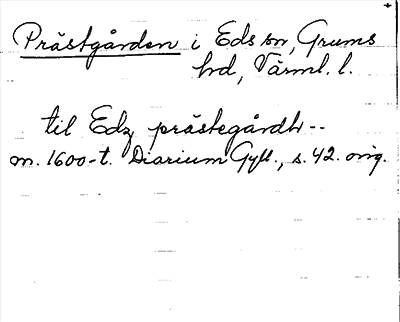 Prästgården i Eds sn, Grums
hd, Värml. l.
til Edz prästegårdh--
m. 1600-t. Diarium Gyll., s. 42. orig.